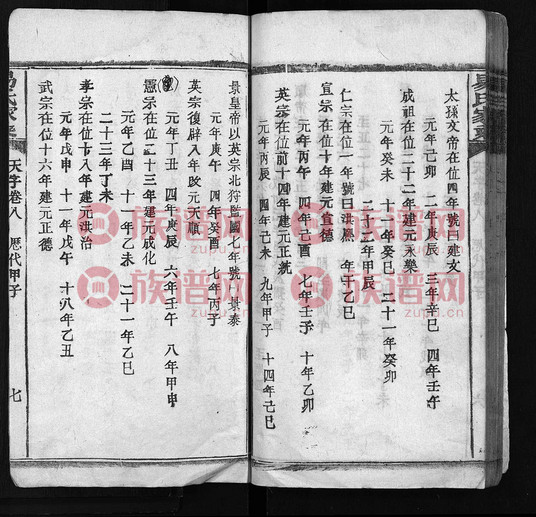 太孫文帝在位四年號曰建文
元年己卯 二年庚辰 三年辛巳 四年壬午
成祖在位二十二年建元永樂
元年癸未 十一年癸巳 二十一年癸卯
二十二年甲辰
仁宗在位一年號曰洪熙 年乙巳
宣宗在位十年建元宣德
元年丙午 四年己酉 七年壬子 十年乙卯
英宗在位前十四年建元正統
元年丙辰 四年己未 九年甲子 十四年己巳
景皇帝以英宗北狩監國七年號 景泰
元年庚午 四年癸酉 七年丙子
英宗復辟入年改元天順
元年丁丑 四年庚辰 六年壬午 八年甲申
憲宗在位二十三年建元成化
元年乙酉 十一年乙未 二十一年乙巳
二十三年丁未
孝宗在位十八年建元洪治
元年戊申 十一年戊午 十八年乙丑
武宗在位十六年建元正德
天字卷八 歷代甲子 七
族谱网
zupu.cn